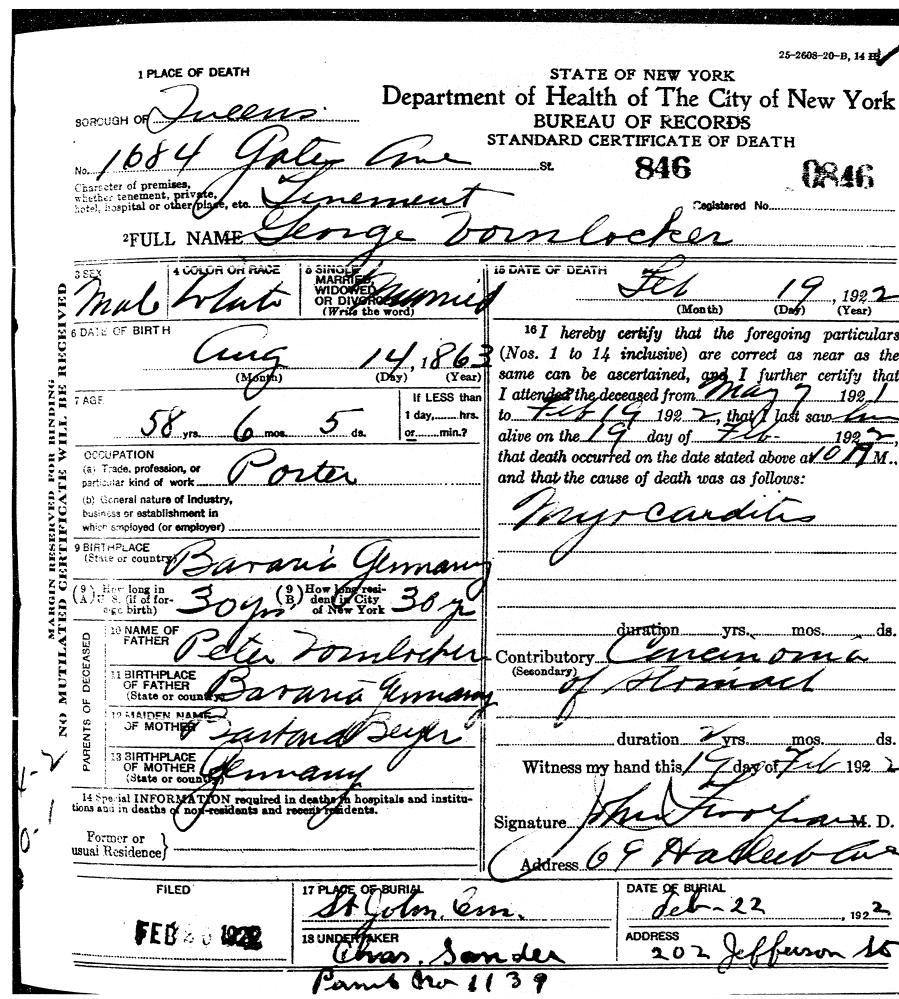 25-2608-20-B, 14
1 PLACE OF DEATH
STATE OF NEW YORK
Department of Health of The City of New York
BUREAU OF RECORDS
STANDARD CERTIFICATE OF DEATH
BOROUGH OF Queens
No. 1684 Gates Ave St.
846 0846
Character of premises,
whether tenement, private,
hotel, hospital or other place, etc. Tenement
Registered No.
2 FULL NAME George Vornlocker
3 SEX Male
4 COLOR OR RACE White
5 SINGLE
MARRIED,
WIDOWED
OR DIVORCED Married
(Write the word)
6 DATE OF BIRTH
Aug 14, 1863
(Month) (Day) (Year)
7 AGE
58 yrs. 6 mos. 5 ds.
If LESS than
1 day, hrs.
or min.?
OCCUPATION
(a) Trade, profession, or
particular kind of work Porter
(b) General nature of Industry,
business or establishment in
which employed (or employer)
9 BIRTHPLACE
(State or country) Bavaria Germany
(9 A) How long in
U. S. (if of for-
eign birth) 30 yrs.
(9 B) How long resi-
dent in City
of New York 30 yr
PARENTS OF DECEASED
10 NAME OF
FATHER Peter Vornlocker
11 BIRTHPLACE
OF FATHER
(State or country) Bavaria Germany
12 MAIDEN NAME
OF MOTHER Barbara
13 BIRTHPLACE
OF MOTHER
(State or country) Germany
14 Special INFORMATION required in deaths in hospitals and institu-
tions and in deaths of non-residents and recent residents.
Former or
usual Residence
MARGIN RESERVED FOR BINDING
NO MUTILATED CERTIFICATE WILL BE RECEIVED
15 DATE OF DEATH
Feb 19, 1922
(Month) (Day) (Year)
16 I hereby certify that the foregoing particulars
(Nos. 1 to 14 inclusive) are correct as near as the
same can be ascertained, and I further certify that
I attended the deceased from May 7 1921
to Feb 19 1922, that I last saw him
alive on the 19 day of Feb 1922,
that death occurred on the date stated above at 10 A M.,
and that the cause of death was as follows:
Myocarditis
duration yrs. mos. ds.
Contributory Carcinoma
(Secondary) of stomach
duration 2 yrs. mos. ds.
Witness my hand this 19 day of Feb 1922
Signature John M. D.
Address 69 Ave
FILED
FEB 20 1922
17 PLACE OF BURIAL
St John Cem.
DATE OF BURIAL
Feb-22, 1922
18 UNDERTAKER
Chas. Sander
ADDRESS
202 Jefferson St
Permit No 1139